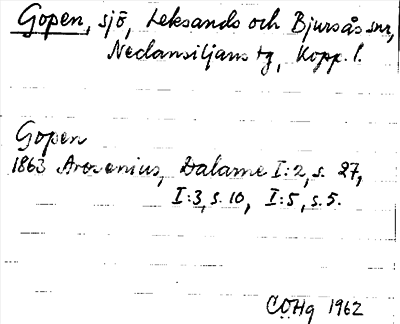 Gopen, sjö, Leksands och Bjursås snr,
Nedansiljans tg, Kopp. l.
Gopen
1863 Arosenius, Dalarne I:2, s. 27,
I:3, s. 10, I:5, s. 5.
CÖHg 1962